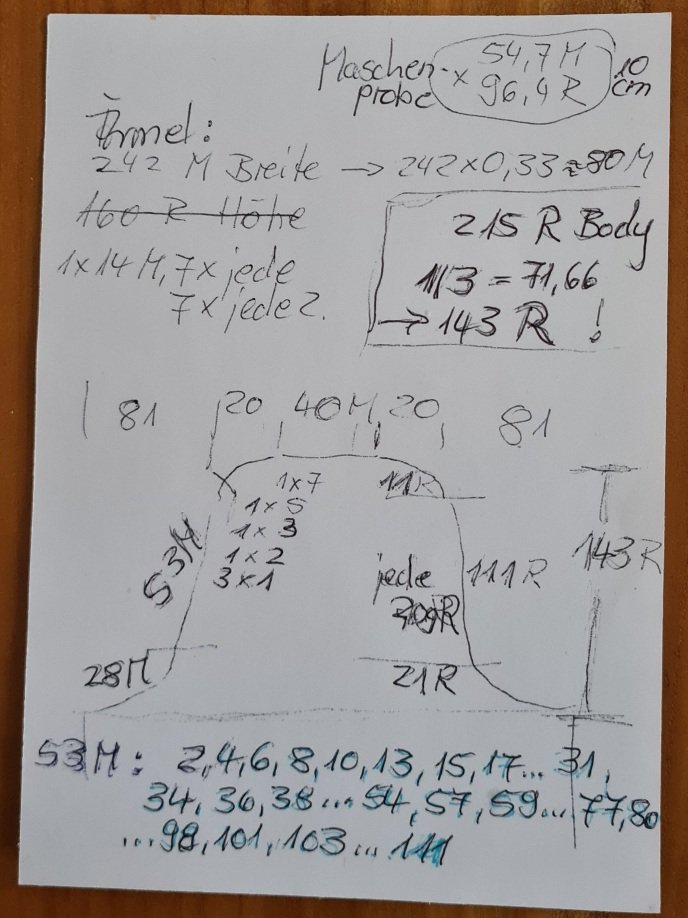 Maschen-
probe
× 54,7 M
96,4 R
10
cm
Ärmel:
242 M Breite → 242×0,33≈80 M
160 R Höhe
1×14 M, 7× jede
7× jede 2.
215 R Body
1/3 = 71,66
→ 143 R !
81 20 40 M 20 81
1×7
1×5
1×3
1×2
3×1
11R
53M
jede
111R
143R
28M
21R
53M: 2,4,6,8,10,13,15,17... 31,
34, 36, 38... 54, 57, 59... 77, 80
...98, 101, 103... 111